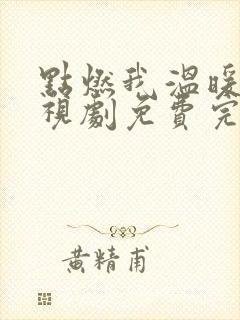 點燃我,溫暖
視劇免費完
黃精甫